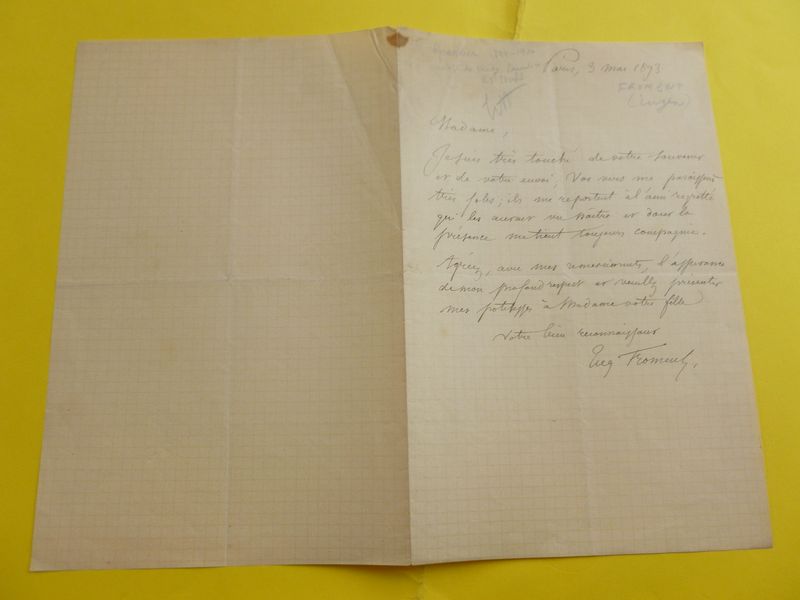 Paris, 3 mai 1893
FROMENT
(Eugène)
Madame,
Je suis très touché de votre souvenir
et de votre envoi; Vos vers me paraissent
très jolis; ils me reportent à l'ami regretté
qui les aurait vu naître et dont la
présence me tient toujours compagnie.
Agréez, avec mes remerciements, l'assurance
de mon profond respect et veuillez présenter
mes politesses à Madame votre fille
Votre bien reconnaissant
Eug Froment